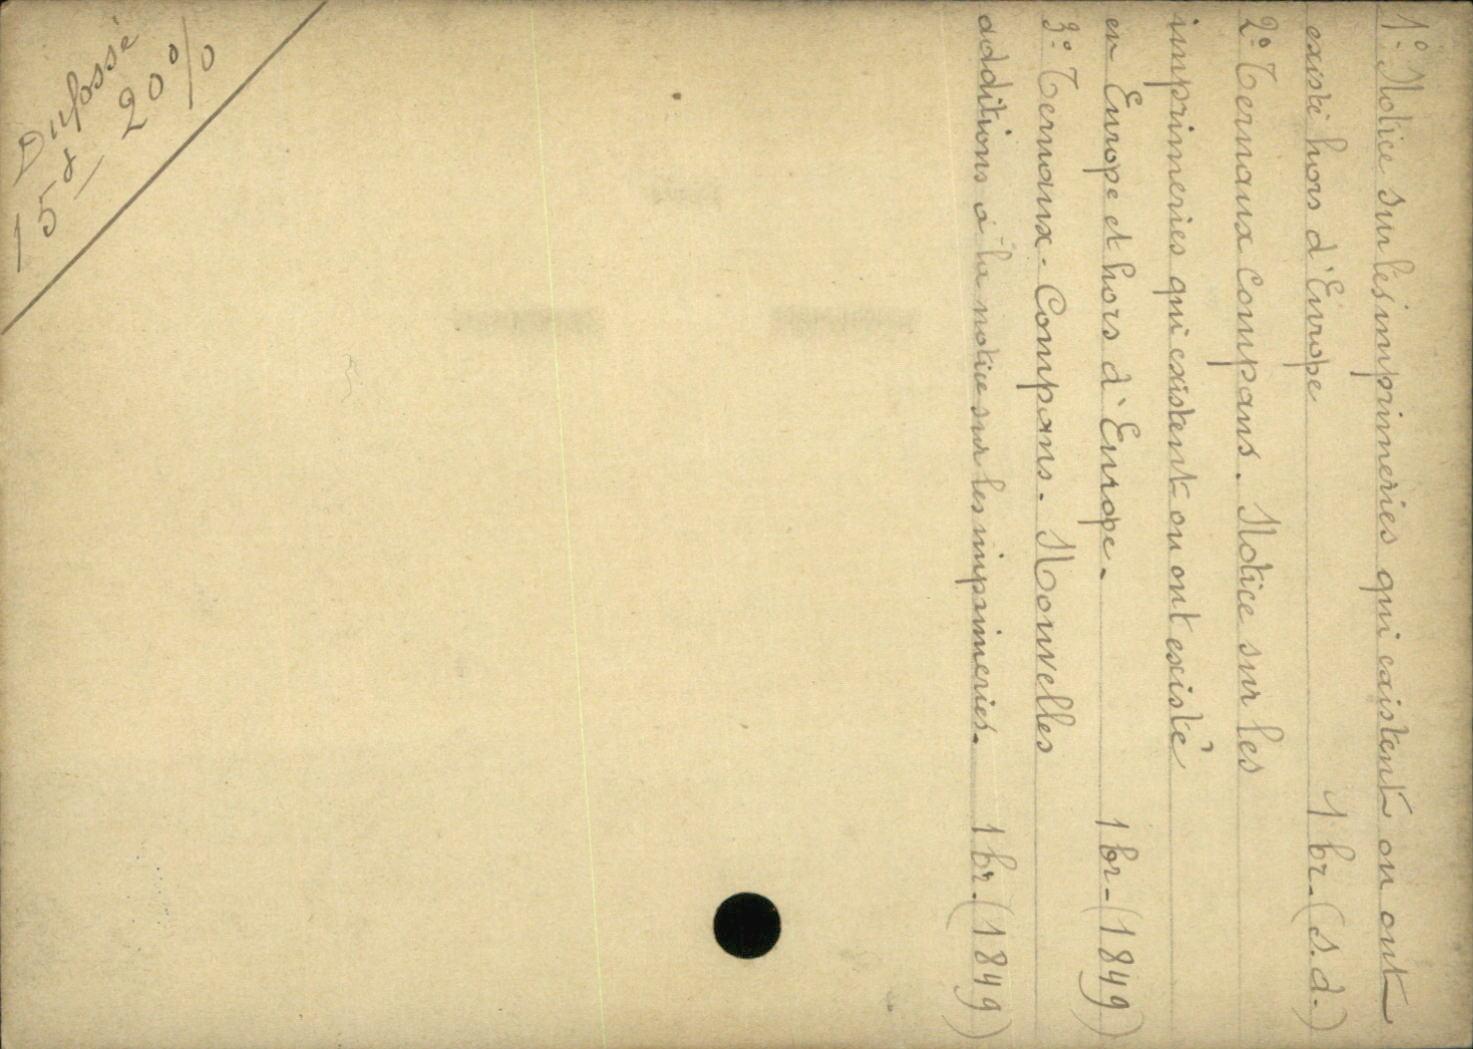 1º Notice sur les imprimeries qui existent ou ont
existé hors d'Europe 1 br. (s.d.)
2º Ternaux Compans. Notice sur les
imprimeries qui existent ou ont existé
en Europe et hors d'Europe. 1 br - (1849)
3º Ternaux - Compans. Nouvelles
additions à la notice sur les imprimeries. 1 br. (1849)